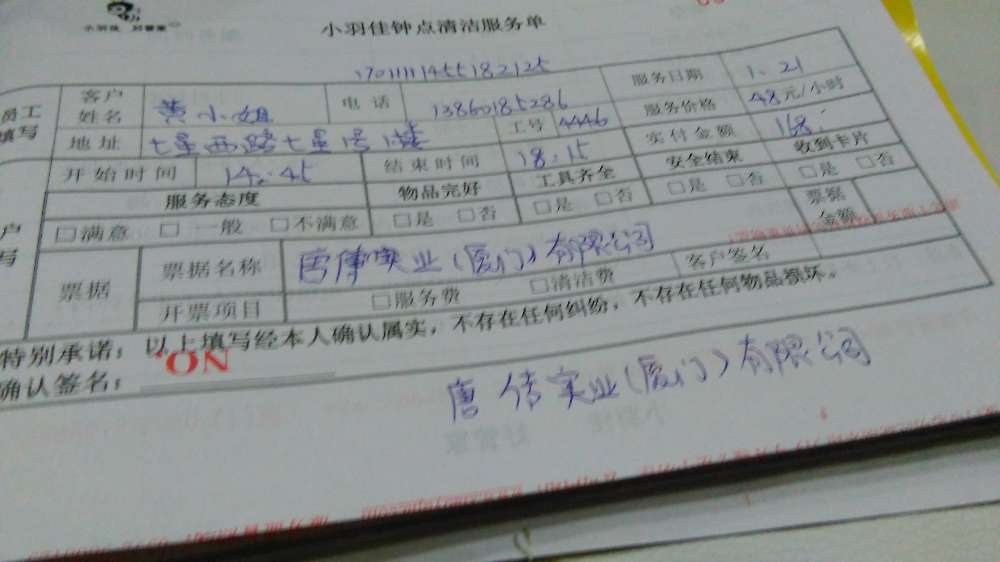 小羽佳 好管家
小羽佳钟点清洁服务单
1701111455182125
员工填写 客户姓名 黄小姐 电话 13860185286 服务日期 1.21
地址 七星西路七星号 工号 4446 服务价格 48元/小时
开始时间 14.45 结束时间 18.15 实付金额 168.
服务态度 物品完好 工具齐全 安全结束 收到卡片
□满意 □一般 □不满意 □是 □否 □是 □否 □是 □否 □是 □否
户写 票据 票据名称 唐傳实业(厦门)有限公司 票据金额
开票项目 □服务费 □清洁费 客户签名
特别承诺：以上填写经本人确认属实，不存在任何纠纷，不存在任何物品损坏。
确认签名：
NO.
唐 倩实业(厦门)有限公司